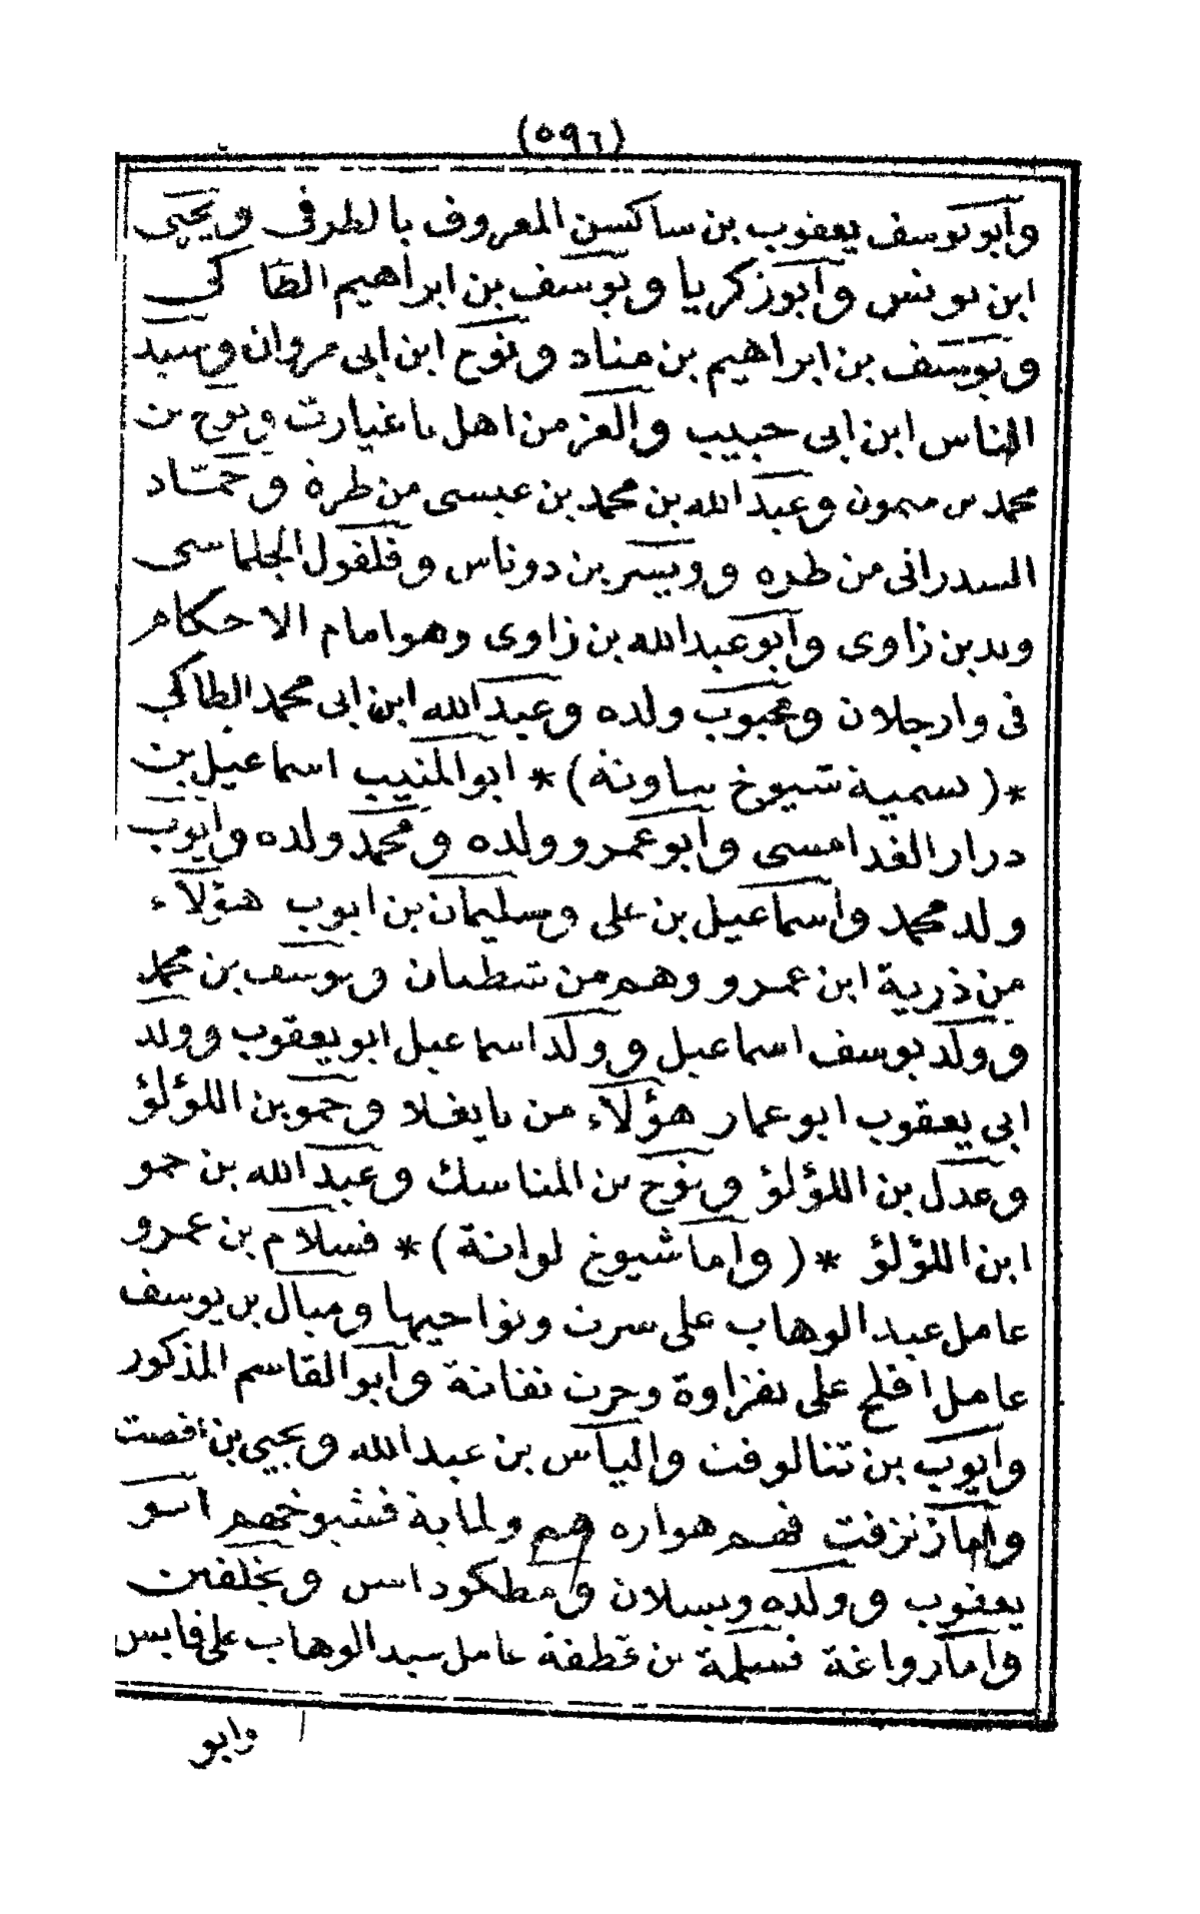 (٥٩٦)
وأبو يوسف يعقوب بن ساكسن المعروف بالطرفى ويحيى
ابن يونس وأبو زكريا ويوسف بن ابراهيم الطاكى
ويوسف بن ابراهيم بن مناد ونوح ابن ابى مروان وسيد
الناس ابن ابى حبيب والعز من اهل ياغيارت ونوح بن
محمد بن ميمون وعبد الله بن محمد بن عيسى من طرة وحماد
السدرانى من طره وويسر بن دوناس وفلفول الجلماسى
ويد بن زاوى وأبو عبد الله بن زاوى وهو امام الاحكام
فى وارجلان ومحبوب ولده وعبد الله ابن ابى محمد الطاكى
*(تسمية شيوخ ساونة)* ابو المنيب اسماعيل بن
درار الغدامسى وأبو عمرو وولده ومحمد ولده وأيوب
ولد محمد وأسماعيل بن على وسليمان بن ايوب هؤلآء
من ذرية ابن عمرو وهم من تيطيان ويوسف بن محمد
وولد يوسف اسماعيل وولد اسماعيل ابو يعقوب وولد
ابي يعقوب ابو عمار هؤلآء من يايغلا وحمو بن اللؤلؤ
وعدل بن اللؤلؤ ونوح بن المناسك وعبد الله بن حمو
ابن اللؤلؤ *(وأما شيوخ لواتة)* فسلام بن عمرو
عامل عبد الوهاب على سرت ونواحيها وميال بن يوسف
عامل افلح على نفزاوة وحرت نفاتة وأبو القاسم المذكور
وأيوب بن تنالوفت والياس بن عبد الله ويحيى بن أفصت
وأما زنزفت فهم هواره هم ولماية فشيوخهم ابو
يعقوب وولده ويسلان ومطكوداسن ويخلفتن
وأما زواغة فسلمة بن قطفة عامل عبد الوهاب على قابس
وابو